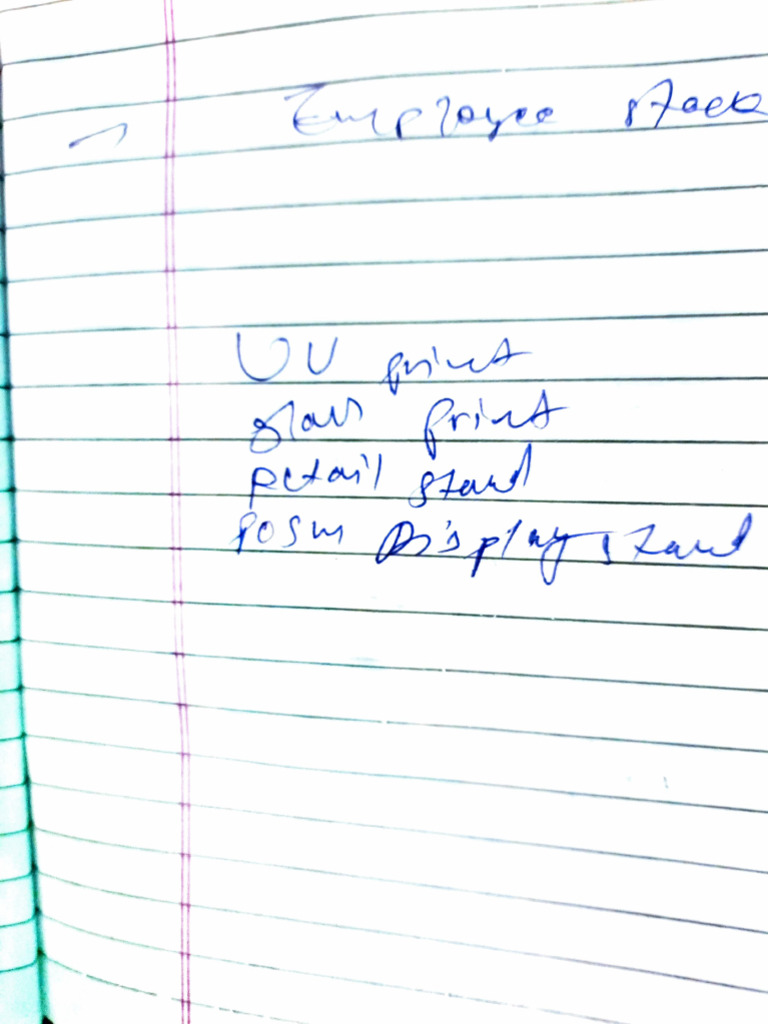 Employee stock
UV print
glass print
retail stand
posm Display stand